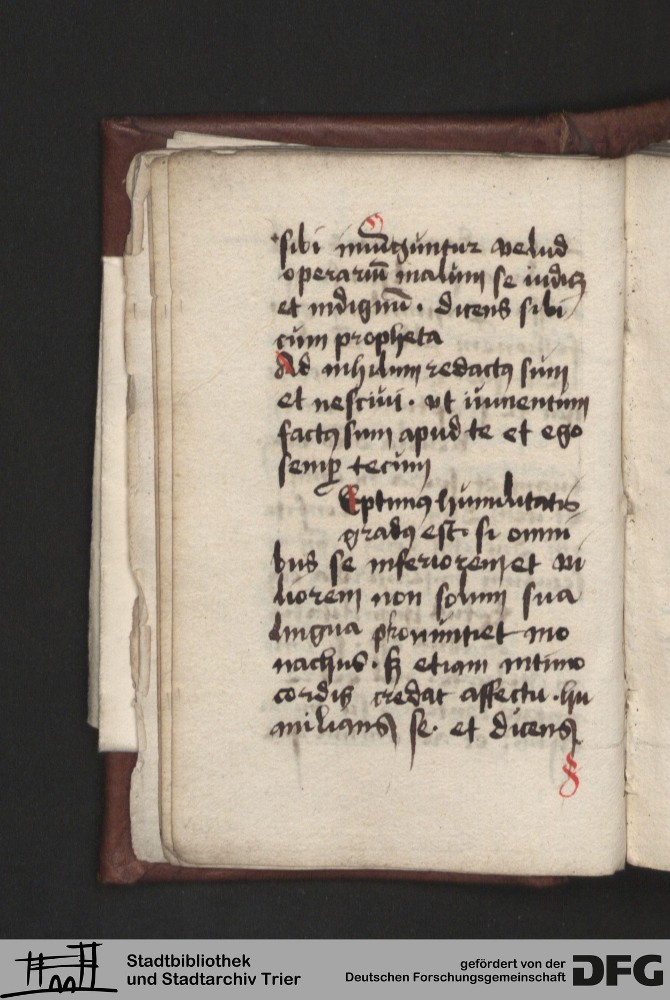 sibi iniu̅guntur velud
operariu̅ malum se iudicꝫ
et indignu̅. dicens sibi
cum propheta
Ad nihilum redactꝰ sum
et nesciui. vt iumentum
factꝰ sum apud te et ego
semꝑ tecum
Eptimꝰ humilitatis
gradꝰ est. si omni
bus se inferiorem et vi
liorem non solum sua
lingua pronuntiet mo
nachus. sꝫ etiam intimo
cordis credat affectu. hu
milians se. et dicens
Stadtbibliothek
und Stadtarchiv Trier
gefördert von der
Deutschen Forschungsgemeinschaft
DFG